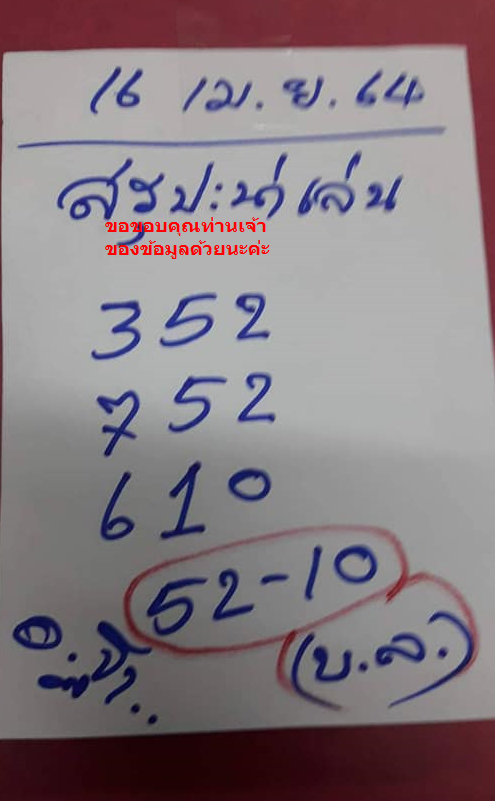 16 เม.ย.64
สรุป:น่าเล่น
ขอขอบคุณท่านเจ้า
ของข้อมูลด้วยนะค่ะ
352
752
610
52-10
(บ.ล.)